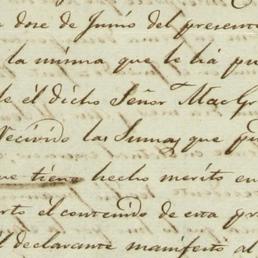 doze de Junio del present
la misma que le ha pu
de él dicho Señor MacGr
Recivido las Sumas que p
que tiene hecho merito en
erto él contenido de esta pr
l declarante manifestó al